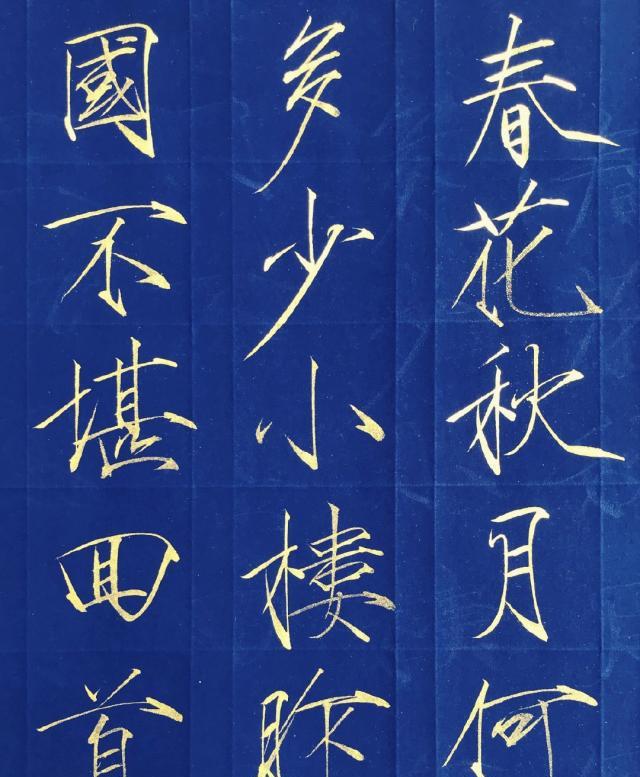 春花秋月何
多少小樓昨
國不堪回首